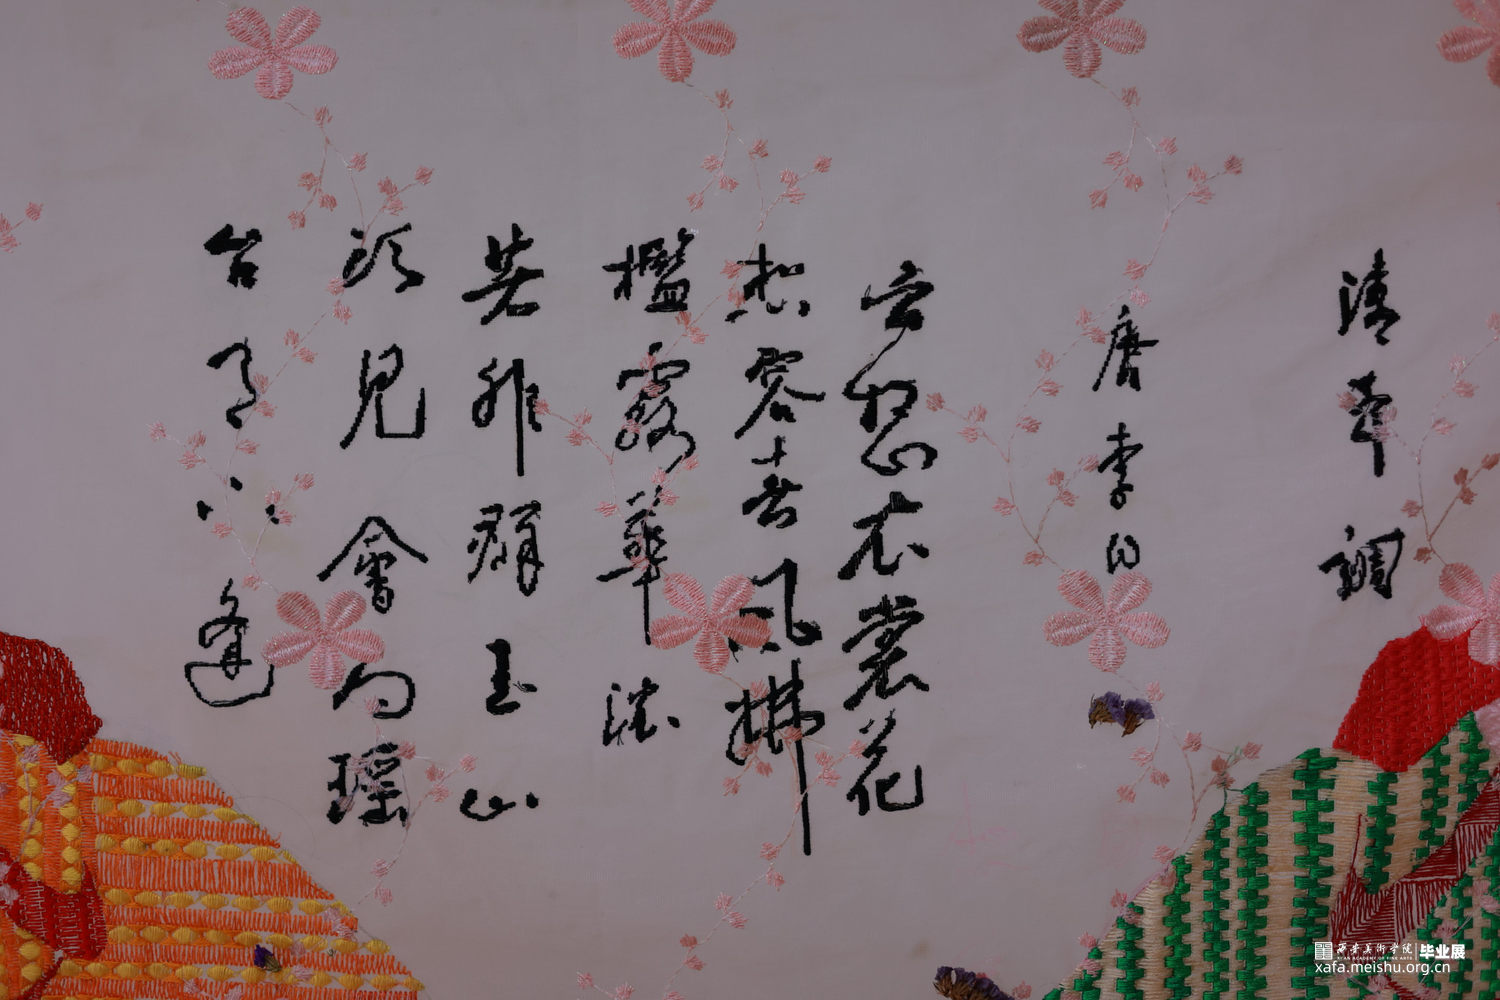 清平調
唐李白
云想衣裳花
想容春風拂
檻露華濃
若非群玉山
頭見會向瑶
台月下逢
西安美術學院 毕业展
XI'AN ACADEMY OF FINE ARTS
xafa.meishu.org.cn